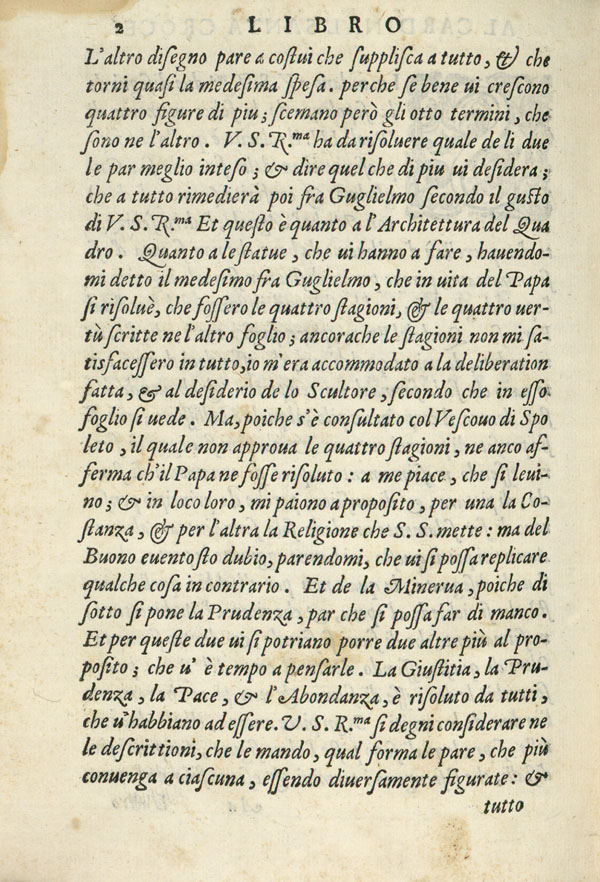 2 LIBRO
L'altro disegno pare a costui che supplisca a tutto, & che
torni quasi la medesima spesa. perche se bene ui crescono
quattro figure di piu; scemano però gli otto termini, che
sono ne l'altro. V. S. R.ma ha da risoluere quale de li due
le par meglio inteso; & dire quel che di piu ui desidera;
che a tutto rimedierà poi fra Guglielmo secondo il gusto
di V. S. R.ma Et questo è quanto a l'Architettura del Qua
dro. Quanto a le statue, che ui hanno a fare, hauendo-
mi detto il medesimo fra Guglielmo, che in uita del Papa
si risoluè, che fossero le quattro stagioni, & le quattro uer-
tù scritte ne l'altro foglio; ancora che le stagioni non mi sa-
tisfacessero in tutto, io m'era accommodato a la deliberation
fatta, & al desiderio de lo Scultore, secondo che in esso
foglio si uede. Ma, poiche s'è consultato col Vescouo di Spo
leto, il quale non approua le quattro stagioni, ne anco af-
ferma ch'il Papa ne fosse risoluto: a me piace, che si leui-
no; & in loco loro, mi paiono a proposito, per una la Co-
stanza, & per l'altra la Religione che S. S. mette: ma del
Buono euento sto dubio, parendomi, che ui si possa replicare
qualche cosa in contrario. Et de la Minerua, poiche di
sotto si pone la Prudenza, par che si possa far di manco.
Et per queste due ui si potriano porre due altre più al pro-
posito; che u' è tempo a pensarle. La Giustitia, la Pru-
denza, la Pace, & l'Abondanza, è risoluto da tutti,
che u'habbiano ad essere. V. S. R.ma si degni considerare ne
le descrittioni, che le mando, qual forma le pare, che più
conuenga a ciascuna, essendo diuersamente figurate: &
tutto